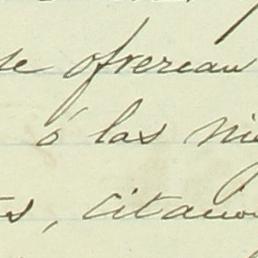 se ofrecian
ó las ni
s, citacion